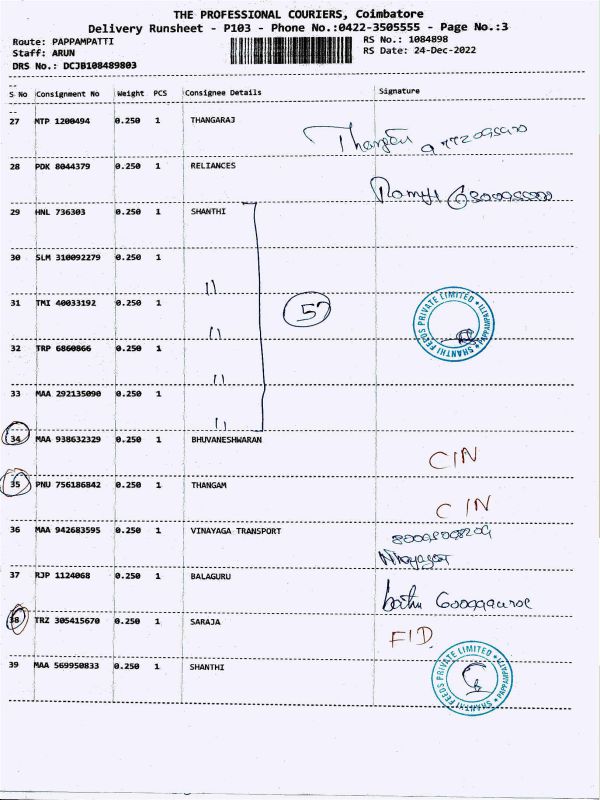 THE PROFESSIONAL COURIERS, Coimbatore
Delivery Runsheet - P103 - Phone No.:0422-3505555 - Page No.:3
Route: PAPPAMPATTI RS No.: 1084898
Staff: ARUN RS Date: 24-Dec-2022
DRS No.: DCJB108489803
S No Consignment No Weight PCS Consignee Details Signature
27 MTP 1200494 0.250 1 THANGARAJ
28 PDK 8044379 0.250 1 RELIANCES
29 HNL 736303 0.250 1 SHANTHI
30 SLM 310092279 0.250 1 "
31 TMI 40033192 0.250 1 " 57 SHANTHI FEEDS PRIVATE LIMITED * PAPPAMPATTI *
32 TRP 6860866 0.250 1 "
33 MAA 292135090 0.250 1 "
34 MAA 938632329 0.250 1 BHUVANESHWARAN CIN
35 PNU 756186842 0.250 1 THANGAM CIN
36 MAA 942683595 0.250 1 VINAYAGA TRANSPORT
37 RJP 1124068 0.250 1 BALAGURU
38 TRZ 305415670 0.250 1 SARAJA FID
39 MAA 569950833 0.250 1 SHANTHI SHANTHI FEEDS PRIVATE LIMITED * PAPPAMPATTI *